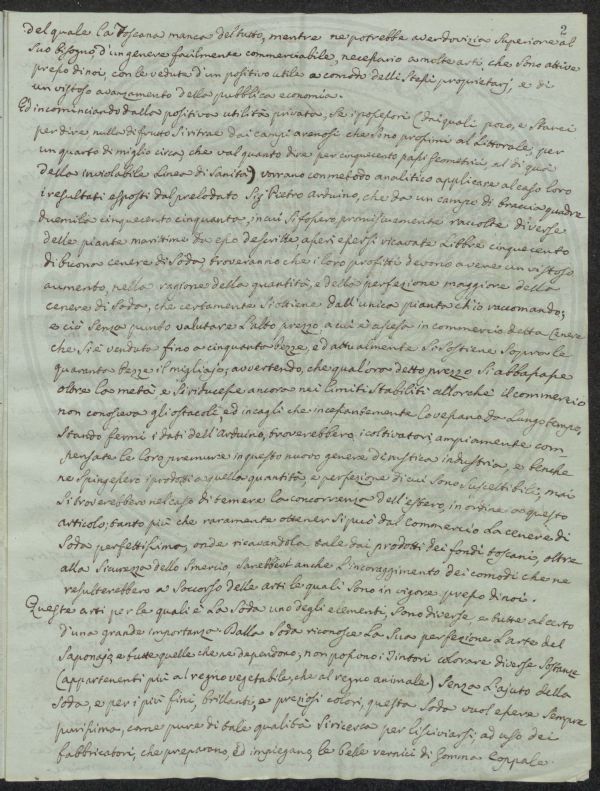 2
del quale la Toscana manca del tutto, mentre ne potrebbe aver dovizia superiore al
suo bisogno, d'un genere facilmente commerciabile, necessario a molte arti, che sono attive
presso di noi, con le vedute d'un positivo utile a comodo delli stessi proprietarj, e di
un vistoso avanzamento della pubblica economia.
Ed incominciando dalla positiva utilità privata, se i possessori (dai quali poco, e starei
per dire nulla di frutto si ritrae dai campi arenosi che sono prossimi al Littorale, per
un quarto di miglio circa, che val quanto dire per cinquecento passi geometrici al di quà
della inviolabile linea di Sanità) vorrano con metodo analitico applicare al caso loro
i resultati esposti dal prelodato Sig Pietro Arduino, che da un campo di braccia quadre
duemila cinquecento cinquanta, in cui si fossero promiscuamente raccolte diverse
delle piante marittime da esso descritte, asserì essersi ricavate Libbre cinquecento
di buona cenere di Soda, troveranno che i loro profitti devono avere un vistoso
aumento, nella ragione della quantità, e della perfezione maggiore della
cenere di Soda, che certamente si ottiene dall'unica pianta ch'io raccomando;
e ciò senza punto valutare l'alto prezzo a cui è ascesa in commercio detta Cenere
che si è venduta fino a cinquanta pezze, ed attualmente si sostiene sopra le
quaranta pezze il migliajo; avvertendo, che qual'ora detto prezzo si abbassasse
oltre la metà e si riducesse ancora nei limiti stabiliti allorchè il commercio
non conosceva gli ostacoli, ed incagli che incessantemente lo vessano da lungo tempo,
stando fermi i dati dell'Arduino, troverebbero i coltivatori ampiamente com-
pensate le loro premure in questo nuovo genere di rustica industria, e benche
ne spingessero i prodotti a quella quantità, e perfezione di cui sono suscettibili, mai
si troverebbero nel caso di temere la concorrenza dell'estero, in ordine a questo
articolo; tanto più che raramente ottener si può dal commercio la cenere di
Soda perfettissima, onde ricavandola tale dai prodotti dei fondi toscani, oltre
alla sicurezza dello smercio sarebbevi anche l'incoraggimento dei comodi che ne
resulterebbero a soccorso delle arti le quali sono in vigore presso di noi.
Queste arti per le quali è la Soda uno degli elementi, sono diverse, e tutte al certo
d'una grande importanza. Dalla Soda riconosce la sua perfezione l'arte del
Saponajo, e tutte quelle che ne dependono; non possono i Tintori colorare diverse sostanze
(appartenenti più al regno vegetabile, che al regno animale) senza l'ajuto della
Soda, e per i più fini, brillanti, e preziosi colori, questa Soda vuol essere sempre
purissima, come pure di tale qualità si ricerca per lisciviarsi; ad uso dei
fabbricatori, che preparano, ed impiegano, le belle vernici di Gomma Coppale.